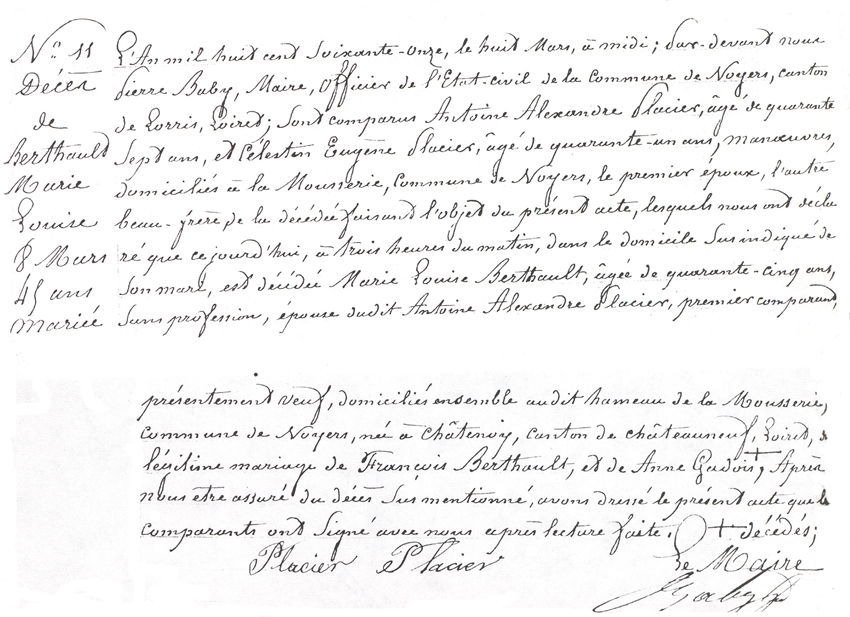 N° 11
Décès
de
Berthault
Marie
Louise
8 Mars
45 ans
mariée
L'An mil huit cent soixante-onze, le huit Mars, à midi; par-devant nous
Pierre Baby, Maire, Officier de l'Etat-civil de la Commune de Noyers, canton
de Lorris, Loiret; sont comparus Antoine Alexandre Placier, âgé de quarante
sept ans, et Célestin Eugène Placier, âgé de quarante-un ans, manœuvres,
domiciliés à la Mousserie, commune de Noyers, le premier époux, l'autre
beau-frère, de la décédée faisant l'objet du présent acte, lesquels nous ont décla
ré que cejourd'hui, à trois heures du matin, dans le domicile sus indiqué de
son mari, est décédée Marie Louise Berthault, âgée de quarante-cinq ans,
sans profession, épouse dudit Antoine Alexandre Placier, premier comparant,
présentement veuf, domiciliés ensemble audit hameau de la Mousserie,
commune de Noyers, née à Châtenoy, canton de châteauneuf, Loiret, du
légitime mariage de François Berthault, et de Anne Gadois + , Après
nous etre assuré du décès sus mentionné, avons dressé le présent acte que les
comparants ont signé avec nous après lecture faite. + décédés;
Placier Placier Le Maire
Baby